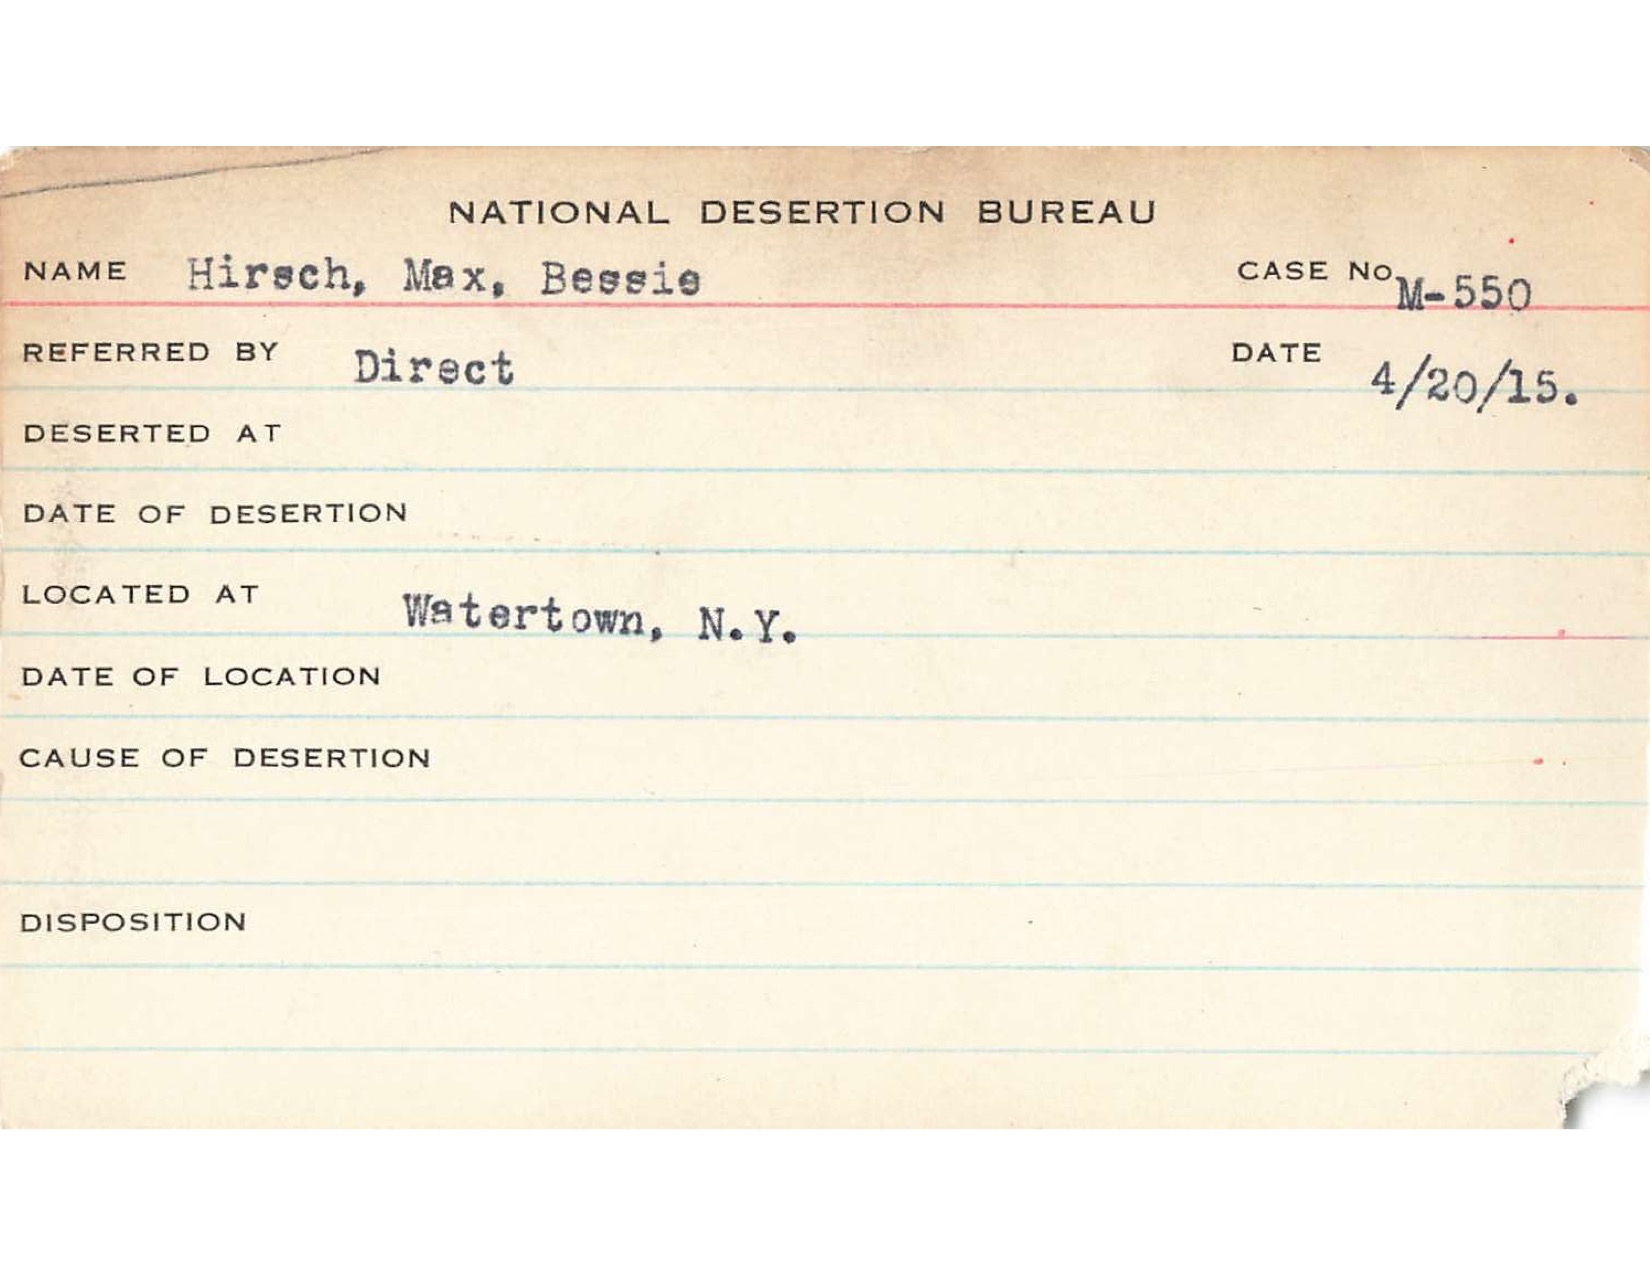 NATIONAL DESERTION BUREAU
NAME Hirsch, Max, Bessie CASE NO. M-550
REFERRED BY Direct DATE 4/20/15.
DESERTED AT
DATE OF DESERTION
LOCATED AT Watertown, N.Y.
DATE OF LOCATION
CAUSE OF DESERTION
DISPOSITION